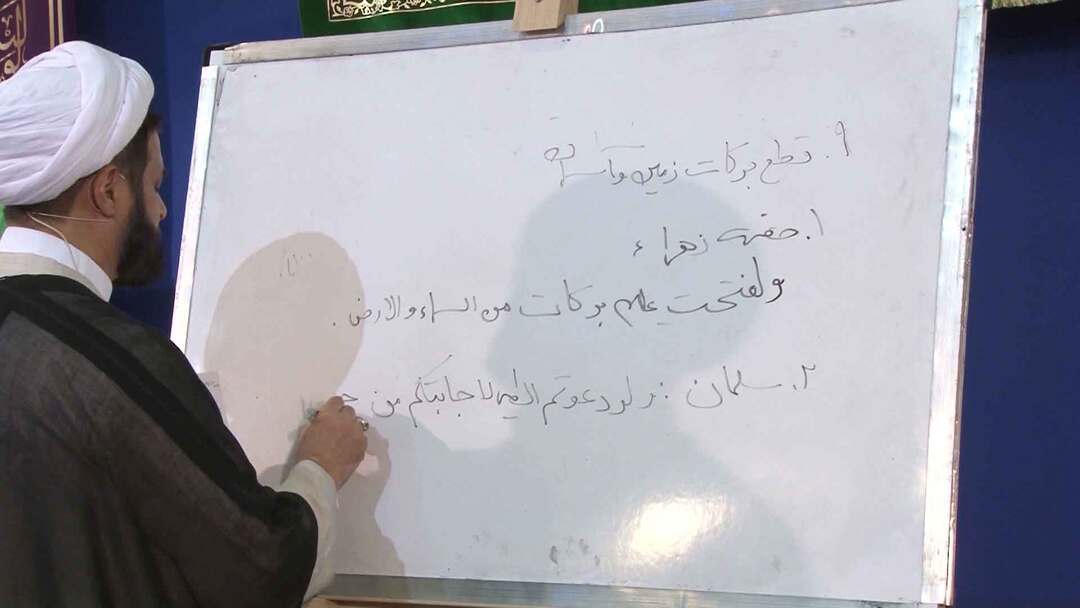 ۹. قطع برکات زمین و آسمان
۱. حضرت زهراء
ولفتحت علیهم برکات من السماء والارض.
۲. سلمان: ولو دعوتم الطیر لاجابتکم من